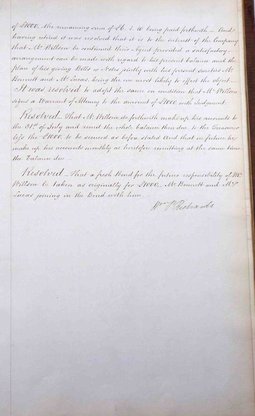 of £2000. The remaining sum of £ being paid forthwith
having advised it was resolved that it is to the interest of the Company
that Mr Willson be continued their Agent provided a satisfactory
arrangement can be made with regard to his present balance and the
plan of his giving Bills or Notes jointly with his present sureties Mr
Bennett and Mr Lucas, being the most likely to effect the object.
It was resolved to adopt the same on condition that Mr Willson
signs a Warrant of Attorney to the amount of £2000 with Judgment.
Resolved. That Mr Willson do forthwith make up his accounts to
the 31st of July and remit the whole balance then due to the Treasurer
less the £2000 to be secured as before stated and that in future he
make up his accounts monthly as heretofore remitting at the same time
the balance due
Resolved. That a fresh Bond for the future responsibility of Mr
Willson be taken as originally for £2000, Mr Bennett and Mr
Lucas joining in the Bond with him.